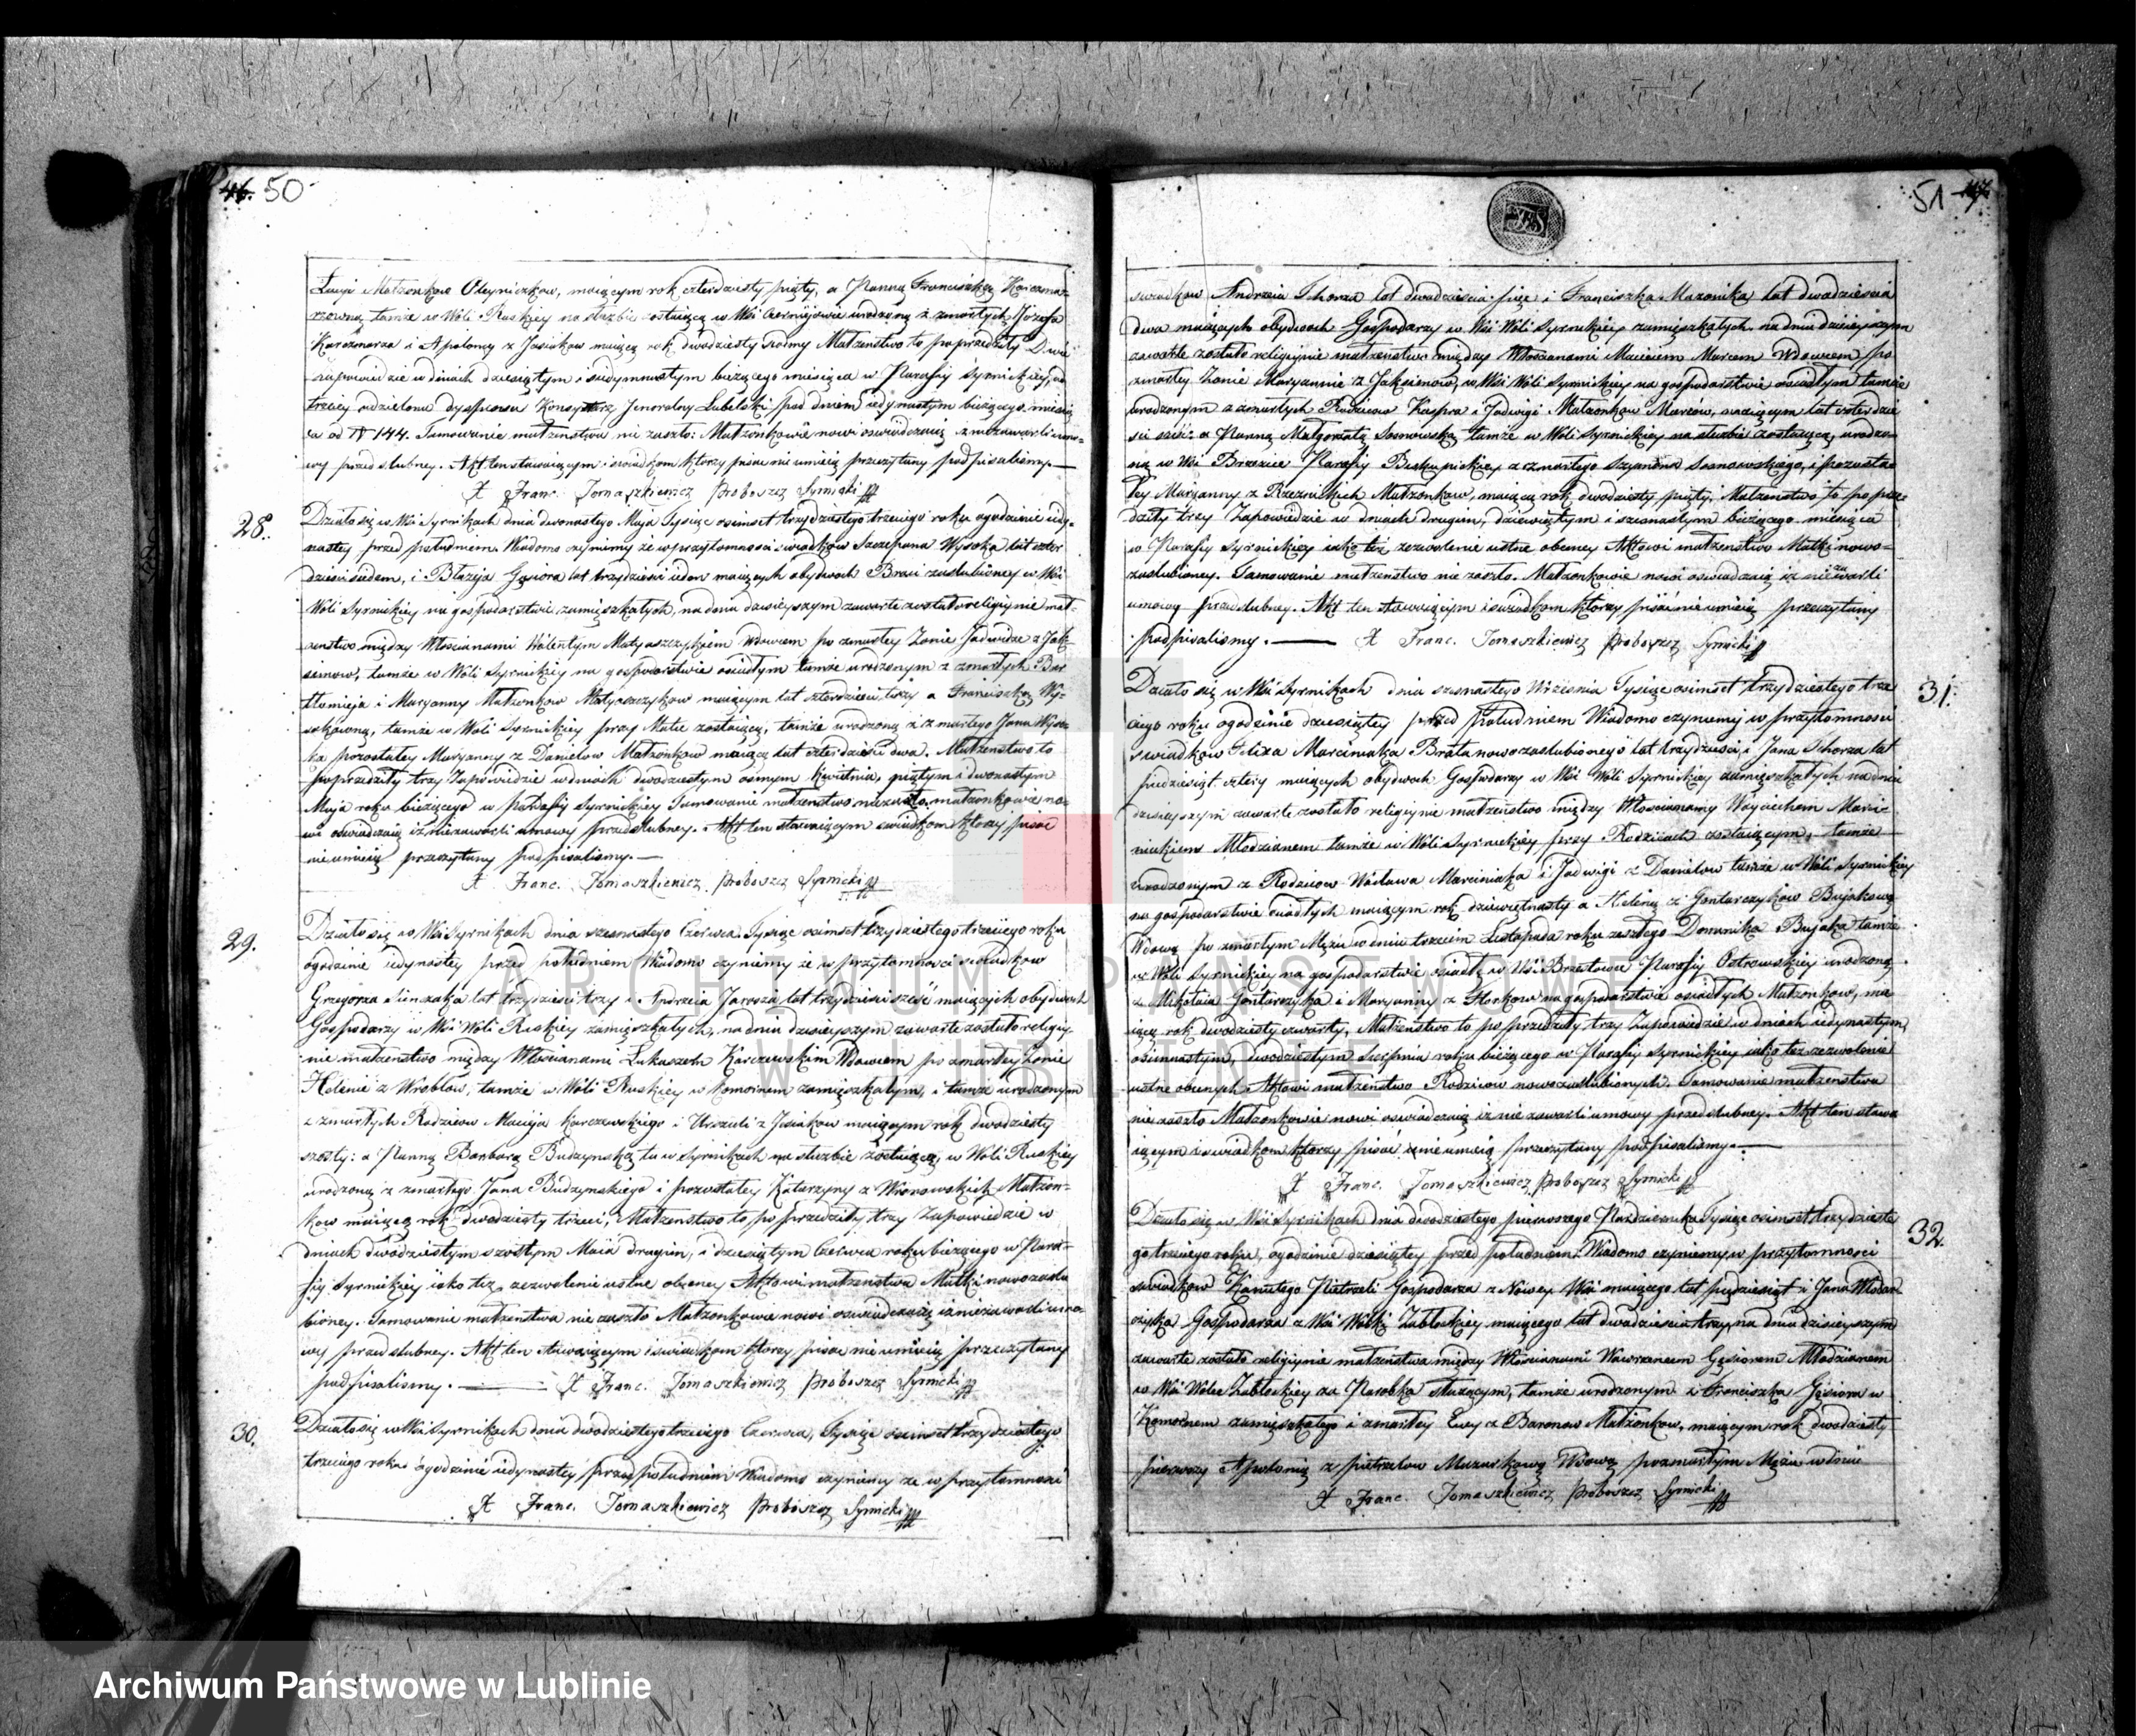 46. 50
Łucyi Małżonkow Oleyniczkow, maiącym rok czterdziesty piąty, a Panną Franciszką Karczma-
rzowną, tamże w Woli Ruskiey na służbie zostaiącą w Wsi Czerniejowie urodzoną z zmarłych Józefa
Karczmarza i Apolonij z Jasiakow maiącą rok dwudziesty siódmy Małżenstwo to poprzedziły Dwie
zapowiedzie w dniach dziesiątym i siedymnastym bieżącego miesiąca w Parafij Syrnickiey, od
trzeciey udzielona dyspensa Konsystorz Jeneralny Lubelski pod dniem iedynastym bieżącego miesią-
ca od N 144. Tamowanie małżenstwa nie zaszło: Małżonkowie nowi oswiadczaią z niezawarli umo-
wy przedslubney. Akt ten stawaiącym i swiadkom ktorzy pisac nie umieią przeczytany podpisalismy.—
X Franc. Tomaszkiewicz Proboszcz Syrnicki
28. Działo się w Wsi Syrnikach dnia dwonastego Maja Tysiąc osimset trzydziestego trzeciego roku ogodzinie iedy-
nastey przed południem. Wiadomo czynimy że w przytomnosci swiadkow Szczepana Wysoka lat czter
dziesci siedem, i Błażeja Gąsiora lat trzydziesci ieden maiących obydwoch Braci zaslubioney w Wsi
Woli Syrnickiey na gospodarstwie zamięszkałych, na dniu dzisieyszym zawarte zostało religiynie mał-
żenstwo między Włoscianami Walentym Matyaszczykiem Wdowcem po zmarłey Żonie Jadwidze z Jak-
simow, tamże w Woli Syrnickiey na gospodarstwie osiadłym tamże urodzonym z zmarłych Bar
tłomieja i Maryanny Małżonkow Matyaszczykow maiącym lat czterdziesci trzy a Franciszką Wy-
sokowną, tamże w Woli Syrnickiey przy Matce zostaiącą, tamże urodzoną z zmarłego Jana Wyso-
ka pozostałey Maryanny z Danielow Małżonkow maiącą lat czterdziesci dwa. Małżenstwo to
poprzedziły trzy Zapowiedzie w dniach dwudziestym osmym Kwietnia, piątym i dwonastym
Maja roku bieżącego w Parafij Syrnickiey Tamowanie małżenstwo nie zaszło. małżonkowie no-
wi oswiadczaią iż niezawarli umowy przedslubney. Akt ten stawaiącym swiadkom ktorzy pisac
nie umieią przeczytany podpisalismy.—
X Franc. Tomaszkiewicz Proboszcz Syrnicki
29. Działo się w Wsi Syrnikach dnia szesnastego Czerwca Tysiąc osimset trzydziestego trzeciego roku
ogodzinie iedynastey przed południem Wiadomo czyniemy że w przytomnosci swiadkow
Grzegorza Sienzaka lat trzydziesci trzy i Andrzeia Jarosza lat trzydziesci szesć maiących obydwoch
Gospodarzy w Wsi Woli Ruskiey zamięszkałych, na dniu dzisieyszym zawarte zostało religiy-
nie małżenstwo między Włoscianami Łukaszem Karczewskim Wdowcem po zmarłey Żonie
Helenie z Wroblow, tamże w Woli Ruskiey w Komornem zamięszkałym, i tamże urodzonym
z zmarłych Rodzicow Macieja Karczewskiego i Urszuli z Jasiakow maiącym rok dwudziesty
szosty: a Panną Barbarą Budzynską tu w Syrnikach na służbie zostaiącą, w Woli Ruskiey
urodzoną z zmarłego Jana Budzynskiego i pozostałey Katarzyny z Wronowskich Małżon-
kow maiącą rok dwudziesty trzeci, Małżenstwo to poprzedziły trzy Zapowiedzie w
dniach dwudziestym szostym Maia drugim, i dziesiątym Czerwca roku bieżącego w Para-
fij Syrnickiey iako też zezwolenie ustne obecney Aktowi małżenstwa Matki nowozaslu
bioney. Tamowanie małżenstwa nie zaszło Małżonkowie nowi oswiadczaią iż niezawarli umo-
wy przedslubney. Akt ten stawaiącym i swiadkom ktorzy pisac nie umieią przeczytany
podpisalismy. — X Franc. Tomaszkiewicz Proboszcz Syrnicki
30. Działo się w Wsi Syrnikach dnia dwudziestego trzeciego Czerwca, Tysiąc osimset trzydziestego
trzeciego roku ogodzinie iedynastey przed południem Wiadomo czyniemy że w przytomnosci
X Franc. Tomaszkiewicz Proboszcz Syrnicki
51 47.
swiadkow Andrzeia Tchorza lat dwadziescia pięc i Franciszka Mazonika lat dwadziescia
dwa maiących obydwoch Gospodarzy w Wsi Woli Syrnickiey zamięszkałych na dniu dzisieyszym
zawarte zostało religiynie małżenstwo między Włoscianami Macieiem Marcem Wdowcem po
zmarłey Żonie Maryannie z Jaksimow w Wsi Woli Syrnickiey na gospodarstwie osiadłym tamże
urodzonym z zmarłych Rodzicow Kaspra i Jadwigi Małżonkow Marcow, maiącym lat czterdzie
sci szesć a Panną Małgorzatą Sosnowską tamże w Woli Syrnickiey na służbie zostaiącą, urodzo-
ną w Wsi Brzezice Parafij Biskupickiey z zmarłego Szymona Sosnowskiego, i pozosta-
łey Maryanny z Rzeznickich Małżonkow, maiącą rok dwudziesty piąty. Małżenstwo to poprze-
dziły trzy Zapowiedzie w dniach drugim, dziewiątym i szesnastym bieżącego miesiąca
w Parafij Syrnickiey iako też zezwolenie ustne obecney Aktowi małżenstwo Matki nowo-
zaslubioney. Tamowanie małżenstwo nie zaszło. Małżonkowie nowi oswiadczaią iz niezawarli
umowy przedslubney. Akt ten stawaiącym i swiadkom ktorzy pisać nie umieią przeczytany
podpisalismy. — X Franc. Tomaszkiewicz Proboszcz Syrnicki
31. Działo się w Wsi Syrnikach dnia szesnastego Wrzesnia Tysiąc osimset trzydziestego trze
ciego roku ogodzinie dziesiątey przed południem Wiadomo czynimy w przytomnosci
swiadkow Felixa Marciniaka Brata nowozaslubionego lat trzydziesci, i Jana Tchorza lat
piędziesiąt cztery maiących obydwoch Gospodarzy w Wsi Woli Syrnickiey zamięszkałych na dniu
dzisieyszym zawarte zostało religiynie małżenstwo między Włoscianamy Woyciechem Marci-
niakiem Młodzianem tamże w Woli Syrnickiey przy Rodzicach zostaiącym, tamże
urodzonym z Rodzicow Wacława Marciniaka i Jadwigi z Danielow tamże w Woli Syrnickiey
na gospodarstwie osiadłych maiącym rok dziewiętnasty a Heleną z Gontarczykow Bujakową
Wdową po zmarłym Mężu w dniu trzecim Listopada roku zeszłego Dominika Bujaka tamże
w Woli Syrnickiey na gospodarstwie osiadłą w Wsi Brzostowce Parafij Ostrowskiey urodzoną
z Mikołaia Gontarczyka i Maryanny z Florkow na gospodarstwie osiadłych Małżonkow, ma
iącą rok dwudziesty czwarty, Małżenstwo to poprzedziły trzy Zapowiedzie w dniach iedynastym,
osimnastym, dwudziestym Sierpnia roku bieżącego w Parafij Syrnickiey iako też zezwolenie
ustne obecnych Aktowi małżenstwo Rodzicow nowozaslubionych. Tamowanie małżenstwa
nie zaszło Małżonkowie nowi oswiadczaią iz nie zawarli umowy przedslubney. Akt ten stawa
iącym i swiadkom ktorzy pisać nie umieią przeczytany podpisalismy.—
X Franc. Tomaszkiewicz Proboszcz Syrnicki
32. Działo się w Wsi Syrnikach dnia dwudziestego pierwszego Pazdziernika Tysiąc osimset trzydzieste
go trzeciego roku, ogodzinie dziesiątey przed południem. Wiadomo czyniemy w przytomnosci
swiadkow Kamilego Pietrzeli Gospodarza z Nowey Wsi maiącego lat pięćdziesiąt i Jana Włodar
czyka Gospodarza z Wsi Wolki Zabłockiey maiącego lat dwadziescia trzy, na dniu dzisieyszym
zawarte zostało religiynie małżenstwa między Włoscianami Wawrzencem Gąsiorem Młodzianem
w Wsi Wolce Zabłockiey za Parobka służącym, tamże urodzonym z Franciszka Gąsiora w
Komornem zamięszkałego i zmarłey Ewy z Baranow Małżonkow, maiącym rok dwudziesty
pierwszy Apolonią z Pietrzelow Mazurkową Wdową pozmarłym Mężu w dniu
X Franc. Tomaszkiewicz Proboszcz Syrnicki
ARCHIWUM PAŃSTWOWE
W LUBLINIE
Archiwum Państwowe w Lublinie